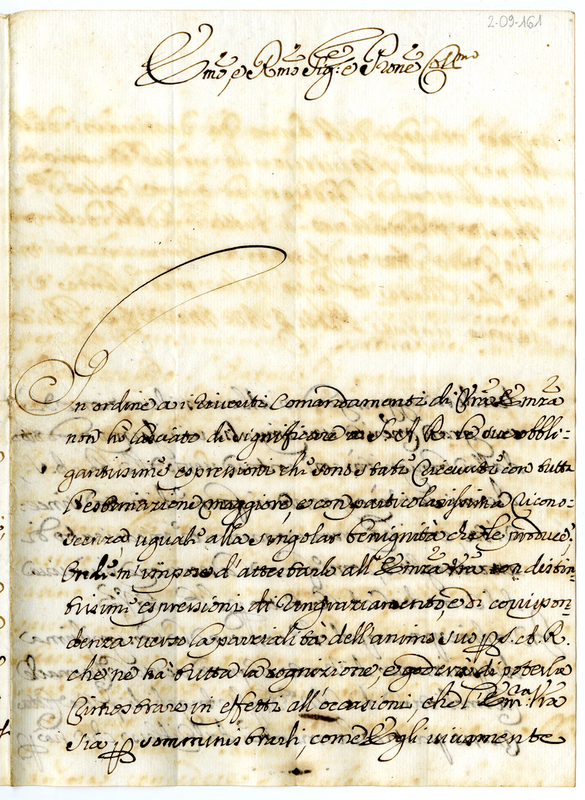 2-09-161
Emo, e Rmo Sig:re e Prone Collmo
In ordine a i riveriti Comandamenti di Vra Emza
non ho lasciato di significare a S. A. R. le sue obbli-
gantissime espressioni che sono state ricevute con tutta
l'estimazione maggiore, e con particolarissima ricono-
scenza, uguale alla singolar benignità che le produce.
Ordinmi impose d'attestarle all'Emza Vra con distin-
tissime espressioni di ringraziamento, e di corrispon
denza verso la parzialità dell'animo suo p S. A. R.
che ne ha tutta la cognizione, e goderà di poterla
rimostrare in effetti all'occasioni, che l'Emza Vra
sia p somministrarli, come Egli vivamente